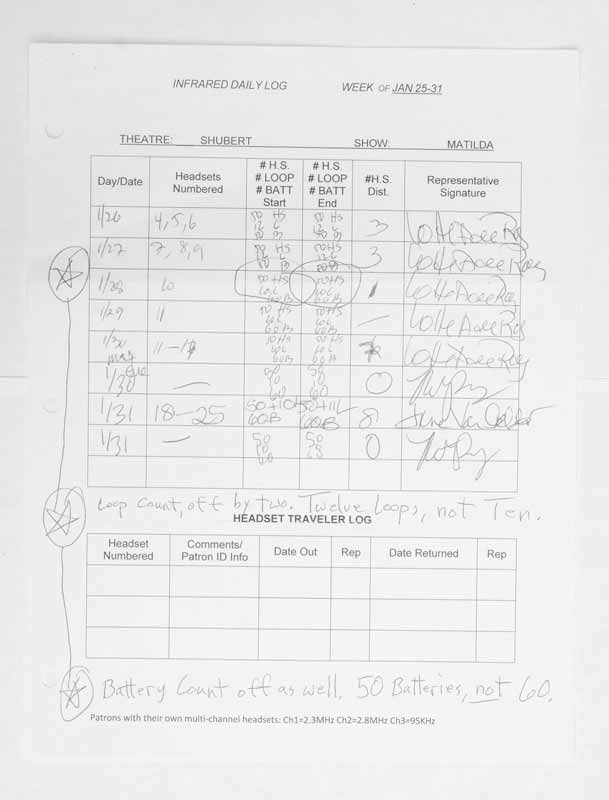 INFRARED DAILY LOG WEEK OF JAN 25-31
THEATRE: SHUBERT SHOW: MATILDA
Day/Date Headsets Numbered # H.S. # LOOP # BATT Start # H.S. # LOOP # BATT End #H.S. Dist. Representative Signature
1/26 4,5,6 50 HS 12 L 50 B 50 HS 12 L 50 B 3
1/27 7, 8, 9 50 HS 12 L 50 B 50 HS 12 L 50 B 3
1/28 10 50 HS 10 L 60 B 50 HS 10 L 60 B 1
1/29 11 50 HS 10 L 60 B 50 HS 10 L 60 B —
1/30 mat 11-17 50 HS 10 L 60 B 50 HS 10 L 60 B
1/30 eve — 50 10 60 50 10 60 0
1/31 18-25 50+10 60B 60B 8
1/31 — 50 10 60 50 0
Loop Count, off by two. Twelve Loops, not Ten.
HEADSET TRAVELER LOG
Headset Numbered Comments/ Patron ID Info Date Out Rep Date Returned Rep
Battery Count off as well. 50 Batteries, not 60.
Patrons with their own multi-channel headsets: Ch1=2.3MHz Ch2=2.8MHz Ch3=95KHz